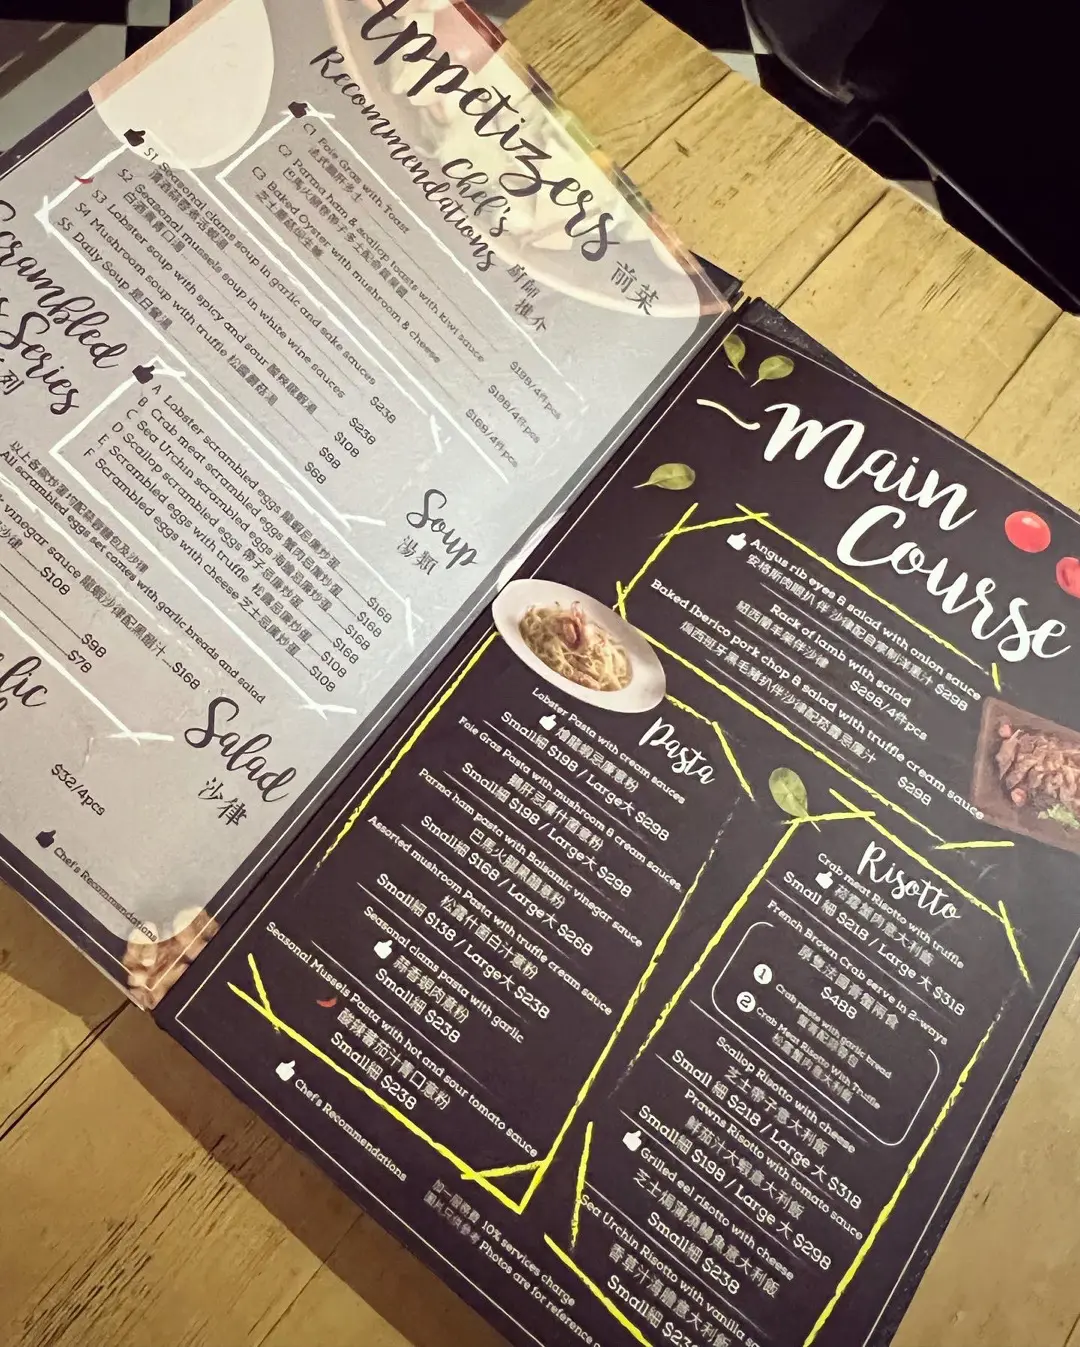 Appetizers
前菜
Chef's
Recommendations
廚師
推介
C1 Foie Gras with Toast
法式鵝肝多士
$198/4件pcs
C2 Parma ham & scallop toasts with kiwi sauce
$198/4件pcs
C3 Baked Oyster with mushroom & cheese
$168/4件pcs
Soup
S1 Seasonal clams soup in garlic and sake sauces
$238
S2 Seasonal mussels soup in white wine sauces
白酒煮青口湯
$238
S3 Lobster soup with spicy and sour 酸辣龍蝦湯
$108
S4 Mushroom soup with truffle 松露蘑菇湯
$98
S5 Daily Soup 是日餐湯
$68
Scrambled
Series
列
A Lobster scrambled eggs 龍蝦忌廉炒蛋
$168
B Crab meat scrambled eggs 蟹肉忌廉炒蛋
$168
C Sea Urchin scrambled eggs 海膽忌廉炒蛋
$168
D Scallop scrambled eggs 帶子忌廉炒蛋
$168
E Scrambled eggs with truffle 松露忌廉炒蛋
$108
F Scrambled eggs with cheese 芝士忌廉炒蛋
$108
以上各款炒蛋均配蒜蓉麵包及沙律
All scrambled eggs set comes with garlic breads and salad
Salad
沙律
vinegar sauce 龍蝦沙律配黑醋汁 $168
$108
$98
$78
$32/4pcs
Chef's Recommendations
Main
Course
Angus rib eyes & salad with onion sauce
安格斯肉眼扒伴沙律配自家制洋蔥汁 $298
Rack of lamb with salad
紐西蘭羊架伴沙律
$298/4件pcs
Baked Iberico pork chop & salad with truffle cream sauce
焗西班牙黑毛豬扒伴沙律配松露忌廉汁
$298
Pasta
Lobster Pasta with cream sauces
燴龍蝦忌廉意粉
Small細 $198 / Large大 $298
Foie Gras Pasta with mushroom & cream sauces
鵝肝忌廉什菌意粉
Small細 $198 / Large大 $298
Parma ham pasta with Balsamic vinegar sauce
巴馬火腿黑醋意粉
Small細 $168 / Large大 $268
Assorted mushroom Pasta with truffle cream sauce
松露什菌白汁意粉
Small細 $138 / Large大 $238
Seasonal clams pasta with garlic
蒜香蜆肉意粉
Small細 $238
Seasonal Mussels Pasta with hot and sour tomato sauce
酸辣蕃茄汁青口意粉
Small細 $238
Chef's Recommendations
Risotto
Crab meat Risotto with truffle
松露蟹肉意大利飯
Small 細 $218 / Large 大 $318
French Brown Crab serve in 2-ways
原隻法國膏蟹兩食
$488
1 Crab paste with garlic bread
蟹膏配蒜蓉包
2 Crab Meat Risotto With Truffle
松露蟹肉意大利飯
Scallop Risotto with cheese
芝士帶子意大利飯
Small 細 $218 / Large 大 $318
Prawns Risotto with tomato sauce
鮮茄汁大蝦意大利飯
Small細 $198 / Large 大 $298
Grilled eel risotto with cheese
芝士焗燒鰻魚意大利飯
Small細 $238
Sea Urchin Risotto with vanilla
香草汁海膽意大利飯
Small細
加一服務費 10% services charge
圖片只供參考 Photos are for reference